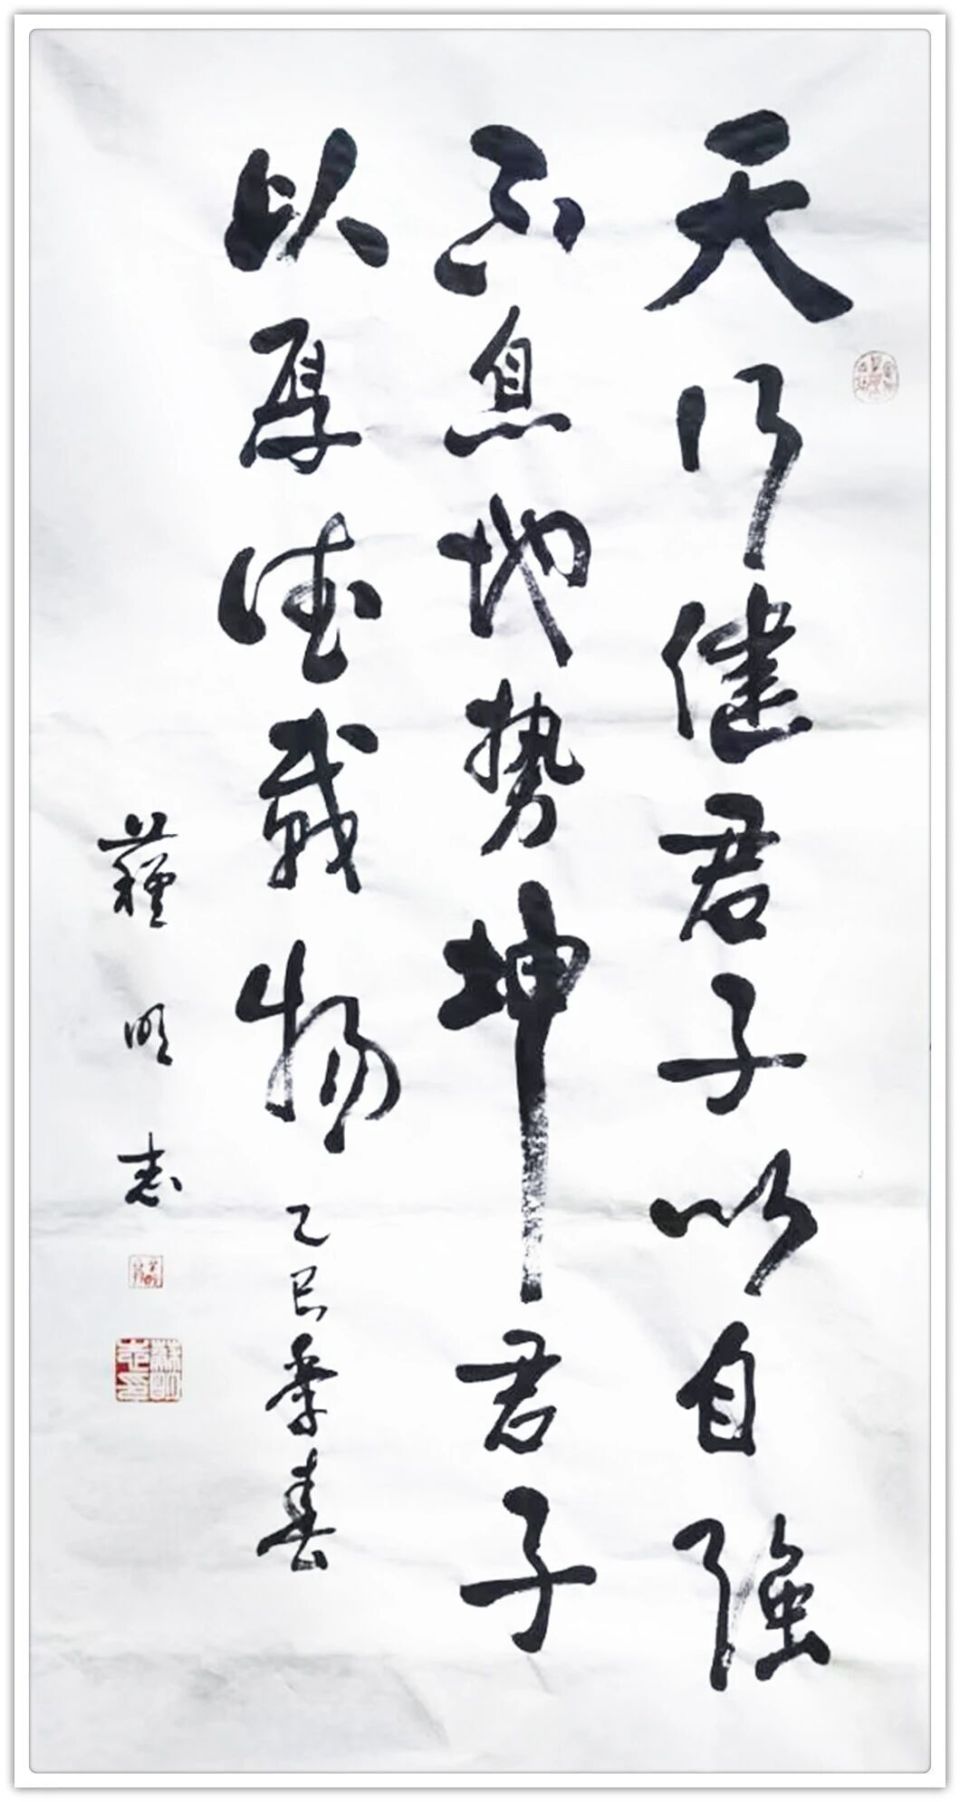 天行健君子以自强
不息地势坤君子
以厚德載物 乙巳季春
蘇明志
蘇明志印